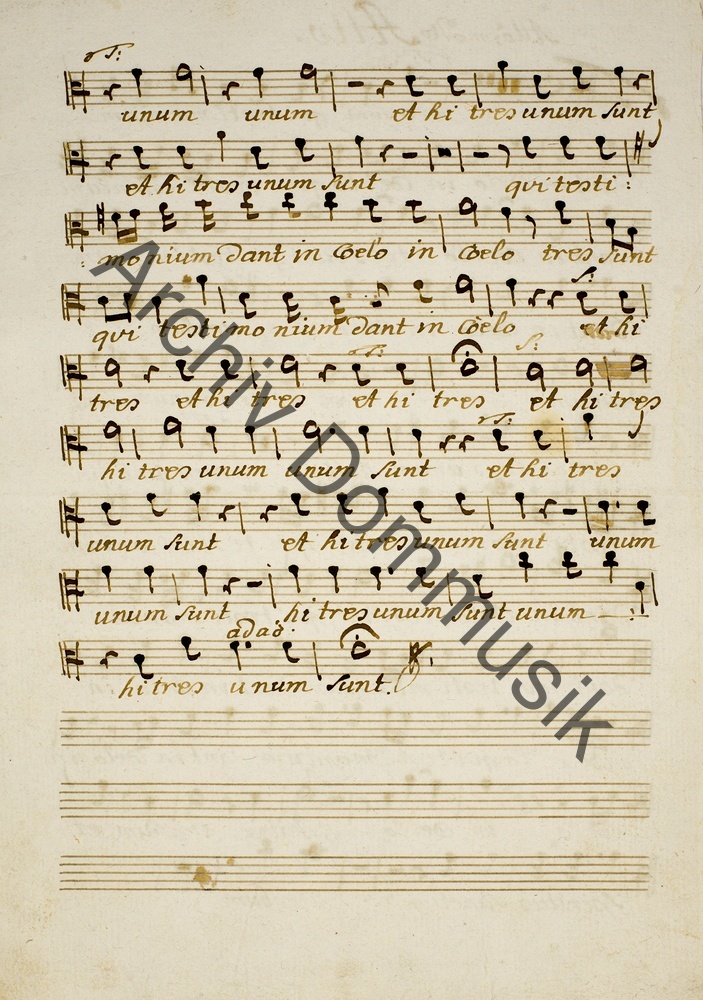 unum unum et hi tres unum sunt
et hi tres unum sunt qui testi:
: monium dant in Coelo in Coelo tres sunt
qui testimonium dant in Coelo et hi
tres et hi tres et hi tres et hi tres
hi tres unum unum sunt et hi tres
unum sunt et hi tres unum sunt unum
unum sunt hi tres unum sunt unum
adag:
hi tres unum sunt.
Archiv Dommusik